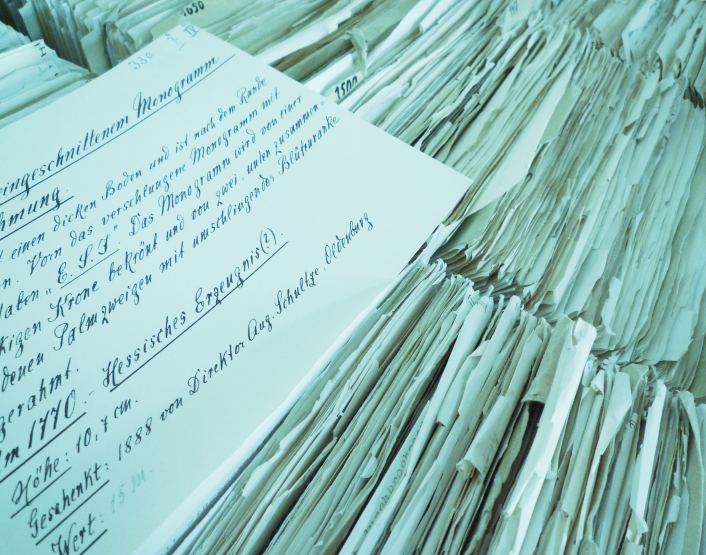 1050
330
IV
3500
eingeschnittenem Monogramm
hmung
einen dicken Boden und ist nach dem Rande
n. Vorn das verschlungene Monogramm mit
taben „E. S. S." Das Monogramm wird von einer
kigen Krone bekrönt und von zwei unten zusammen-
denen Palmzweigen mit umschlingender Blütenranke
gerahmt.
m 1770. - Hessisches Erzeugnis(?).
Höhe: 10,7 cm.
Geschenkt: 1888 von Direktor Aug. Schultze, Oldenburg
Wert: 15 M.